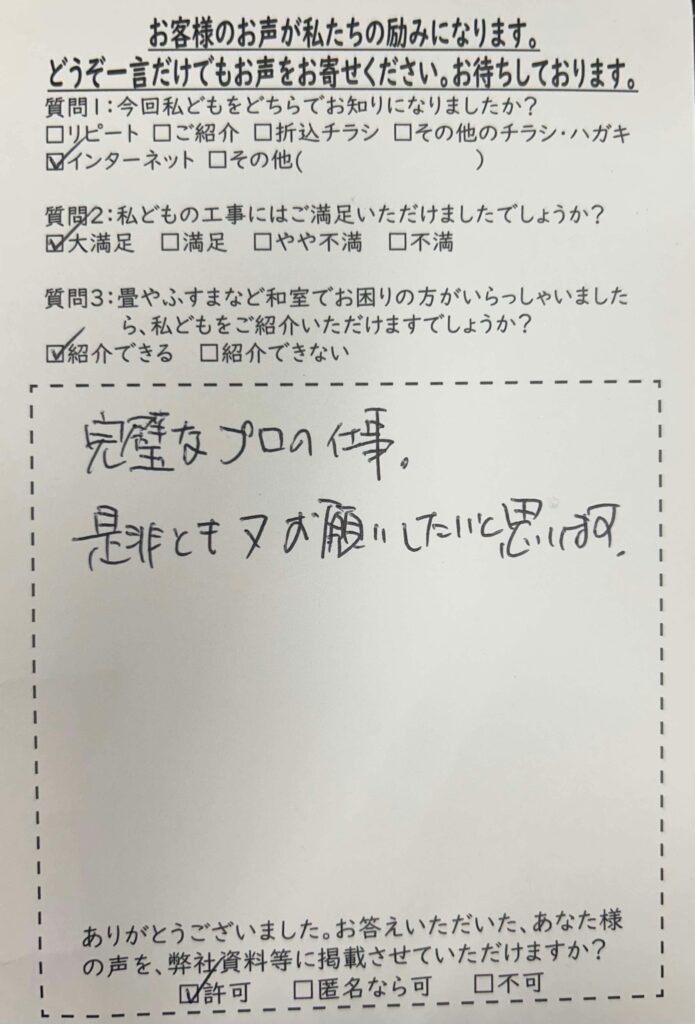 お客様のお声が私たちの励みになります。
どうぞ一言だけでもお声をお寄せください。お待ちしております。
質問1:今回私どもをどちらでお知りになりましたか?
□リピート □ご紹介 □折込チラシ □その他のチラシ・ハガキ
☑インターネット □その他( )
質問2:私どもの工事にはご満足いただけましたでしょうか?
☑大満足 □満足 □やや不満 □不満
質問3:畳やふすまなど和室でお困りの方がいらっしゃいました
ら、私どもをご紹介いただけますでしょうか?
☑紹介できる □紹介できない
完璧なプロの仕事。
是非とも又お願いしたいと思います.
ありがとうございました。お答えいただいた、あなた様
の声を、弊社資料等に掲載させていただけますか?
☑許可 □匿名なら可 □不可